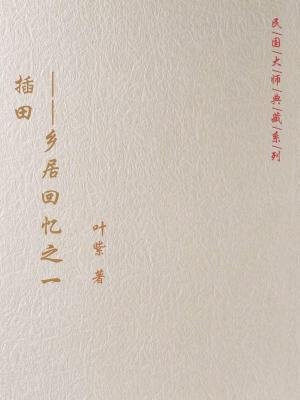 民国大师典藏系列
插田
——乡居回忆之一
叶紫 著